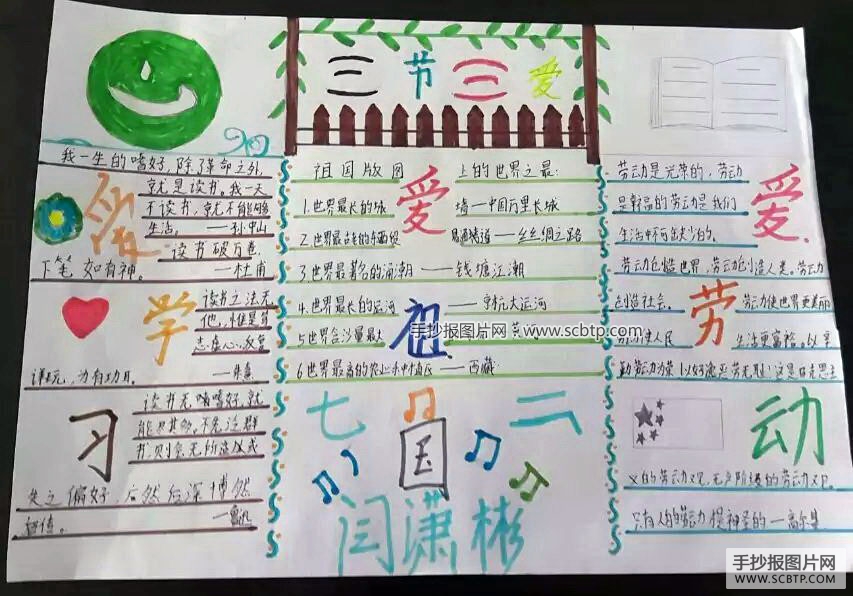 三节三爱
我一生的嗜好,除了革命之外,
就是读书,我一天
不读书,就不能够
生活。——孙中山
读书破万卷,
下笔如有神。——杜甫
爱
读书之法无
他,惟是笃
志虚心,反复
详玩,为有功耳。——朱熹
学
读书无嗜好,就
能尽其多。不先泛群
书,则会无所适从或
失之偏好,广然后深,博然
后专。——鲁迅
习
祖国版图上的世界之最:
1.世界最长的城墙—中国万里长城
2.世界最古老的东西贸易通道——丝绸之路
3.世界最著名的涌潮——钱塘江潮
4.世界最长的运河——京杭大运河
5.世界含沙量最大
6.世界最高的农业水中植区——西藏
爱
祖
国
七 二
闫潇彬
劳动是光荣的,劳动
是幸福的劳动是我们
生活中不可缺少的。
劳动创造世界,劳动创造人类。劳动
创造社会。劳动使世界更美丽
劳动使人民生活更富裕。以辛
勤劳动为荣
义的劳动观,无产阶级的劳动观。
只有人的劳动才是神圣的—高尔基
爱
劳
动
手抄报图片网 www.scbtp.com
手抄报图片网
WWW.SCBTP.COM